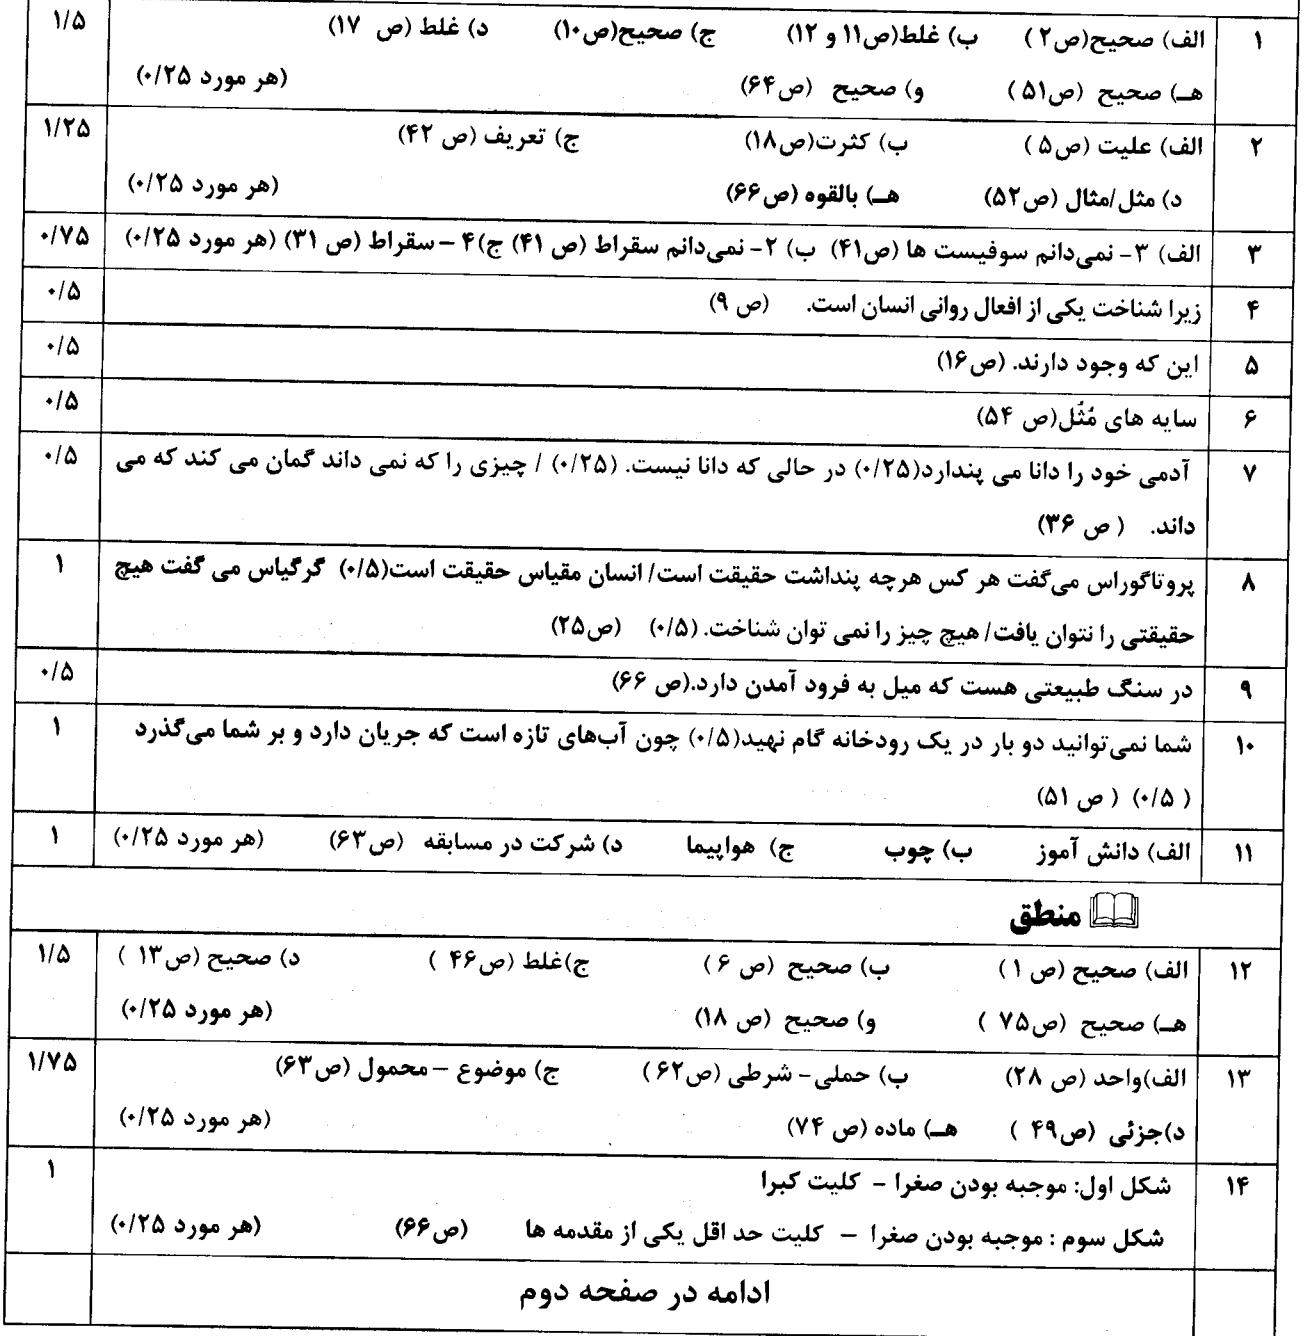 ۱ الف) صحیح(ص۲) ب) غلط(ص۱۱ و ۱۲) ج) صحیح(ص۱۰) د) غلط (ص ۱۷) ۱/۵
هـ) صحیح (ص۵۱) و) صحیح (ص۶۴) (هر مورد ۰/۲۵)
۲ الف) علیت (ص۵) ب) کثرت(ص۱۸) ج) تعریف (ص ۴۲) ۱/۲۵
د) مثل/مثال (ص۵۲) هـ) بالقوه (ص۶۶) (هر مورد ۰/۲۵)
۳ الف) ۳- نمی‌دانم سوفیست ها (ص۴۱) ب) ۲- نمی‌دانم سقراط (ص ۴۱) ج)۴ – سقراط (ص ۳۱) (هر مورد ۰/۲۵) ۰/۷۵
۴ زیرا شناخت یکی از افعال روانی انسان است. (ص ۹) ۰/۵
۵ این که وجود دارند. (ص۱۶) ۰/۵
۶ سایه های مُثُل(ص ۵۴) ۰/۵
۷ آدمی خود را دانا می پندارد(۰/۲۵) در حالی که دانا نیست. (۰/۲۵) / چیزی را که نمی داند گمان می کند که می ۰/۵
داند. ( ص ۳۶)
۸ پروتاگوراس می‌گفت هر کس هرچه پنداشت حقیقت است/ انسان مقیاس حقیقت است(۰/۵) گرگیاس می گفت هیچ ۱
حقیقتی را نتوان یافت/ هیچ چیز را نمی توان شناخت. (۰/۵) (ص۲۵)
۹ در سنگ طبیعتی هست که میل به فرود آمدن دارد.(ص ۶۶) ۰/۵
۱۰ شما نمی‌توانید دو بار در یک رودخانه گام نهید(۰/۵) چون آب‌های تازه است که جریان دارد و بر شما می‌گذرد ۱
( ۰/۵) ( ص ۵۱)
۱۱ الف) دانش آموز ب) چوب ج) هواپیما د) شرکت در مسابقه (ص۶۳) (هر مورد ۰/۲۵) ۱
منطق
۱۲ الف) صحیح (ص ۱) ب) صحیح (ص ۶) ج)غلط (ص۴۶ ) د) صحیح (ص۱۳ ) ۱/۵
هـ) صحیح (ص۷۵ ) و) صحیح (ص ۱۸) (هر مورد ۰/۲۵)
۱۳ الف)واحد (ص ۲۸) ب) حملی- شرطی (ص۶۲) ج) موضوع – محمول (ص۶۳) ۱/۷۵
د)جزئی (ص۴۹ ) هـ) ماده (ص ۷۴) (هر مورد ۰/۲۵)
۱۴ شکل اول: موجبه بودن صغرا – کلیت کبرا ۱
شکل سوم : موجبه بودن صغرا – کلیت حد اقل یکی از مقدمه ها (ص۶۶) (هر مورد ۰/۲۵)
ادامه در صفحه دوم